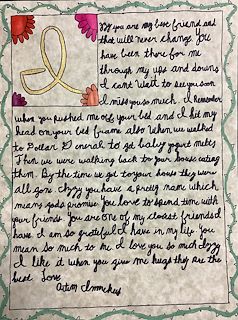 I
Izzy you are my best friend and
that will never change. You
have been there for me
through my ups and downs
I cant wait to see you soon
I miss you so much. I Remember
when you pushed me off your bed and I hit my
head on your bed frame also When we walked
to Dollar General to get baby yogurt melts
Then we were walking back to your house eating
them. By the time we got to your house they were
all gone Izzy you have a pretty name which
means gods promise. You love to spend time with
your friends. You are one of my closest friends I
have. I am so grateful I have in my life. You
mean so much to me I love you so much Izzy
I like it when you give me hugs they are the
best. Love